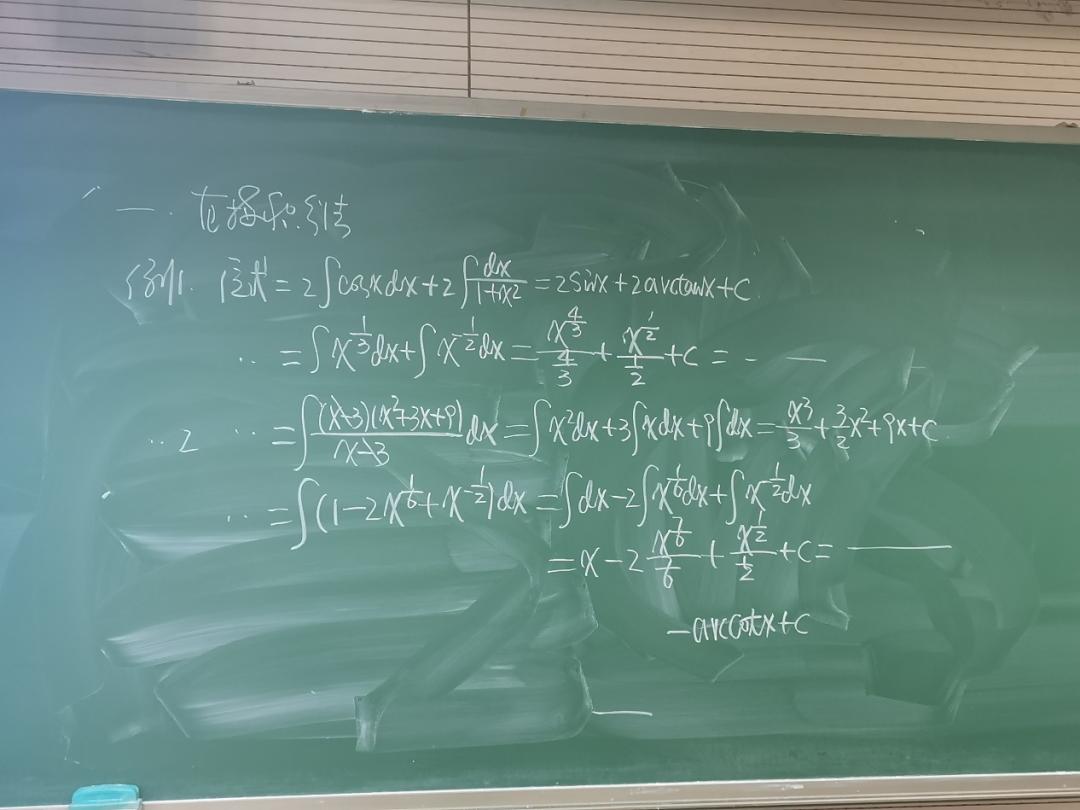 一. 直接积分法
例1. 原式 = 2∫cosxdx+2∫dx/(1+x²) = 2sinx+2arctanx+C
·· = ∫x^(1/3)dx+∫x^(-1/2)dx = x^(4/3)/(4/3) + x^(1/2)/(1/2) + C = - —
·· 2 ·· = ∫(x-3)(x²+3x+9)/(x-3) dx = ∫x²dx+3∫xdx+9∫dx = x³/3 + 3/2x²+9x+C
·· = ∫(1-2x^(1/6)+x^(-1/2))dx = ∫dx-2∫x^(1/6)dx+∫x^(-1/2)dx
= x-2 x^(7/6)/(7/6) + x^(1/2)/(1/2) + C = ——
-arccotx+C